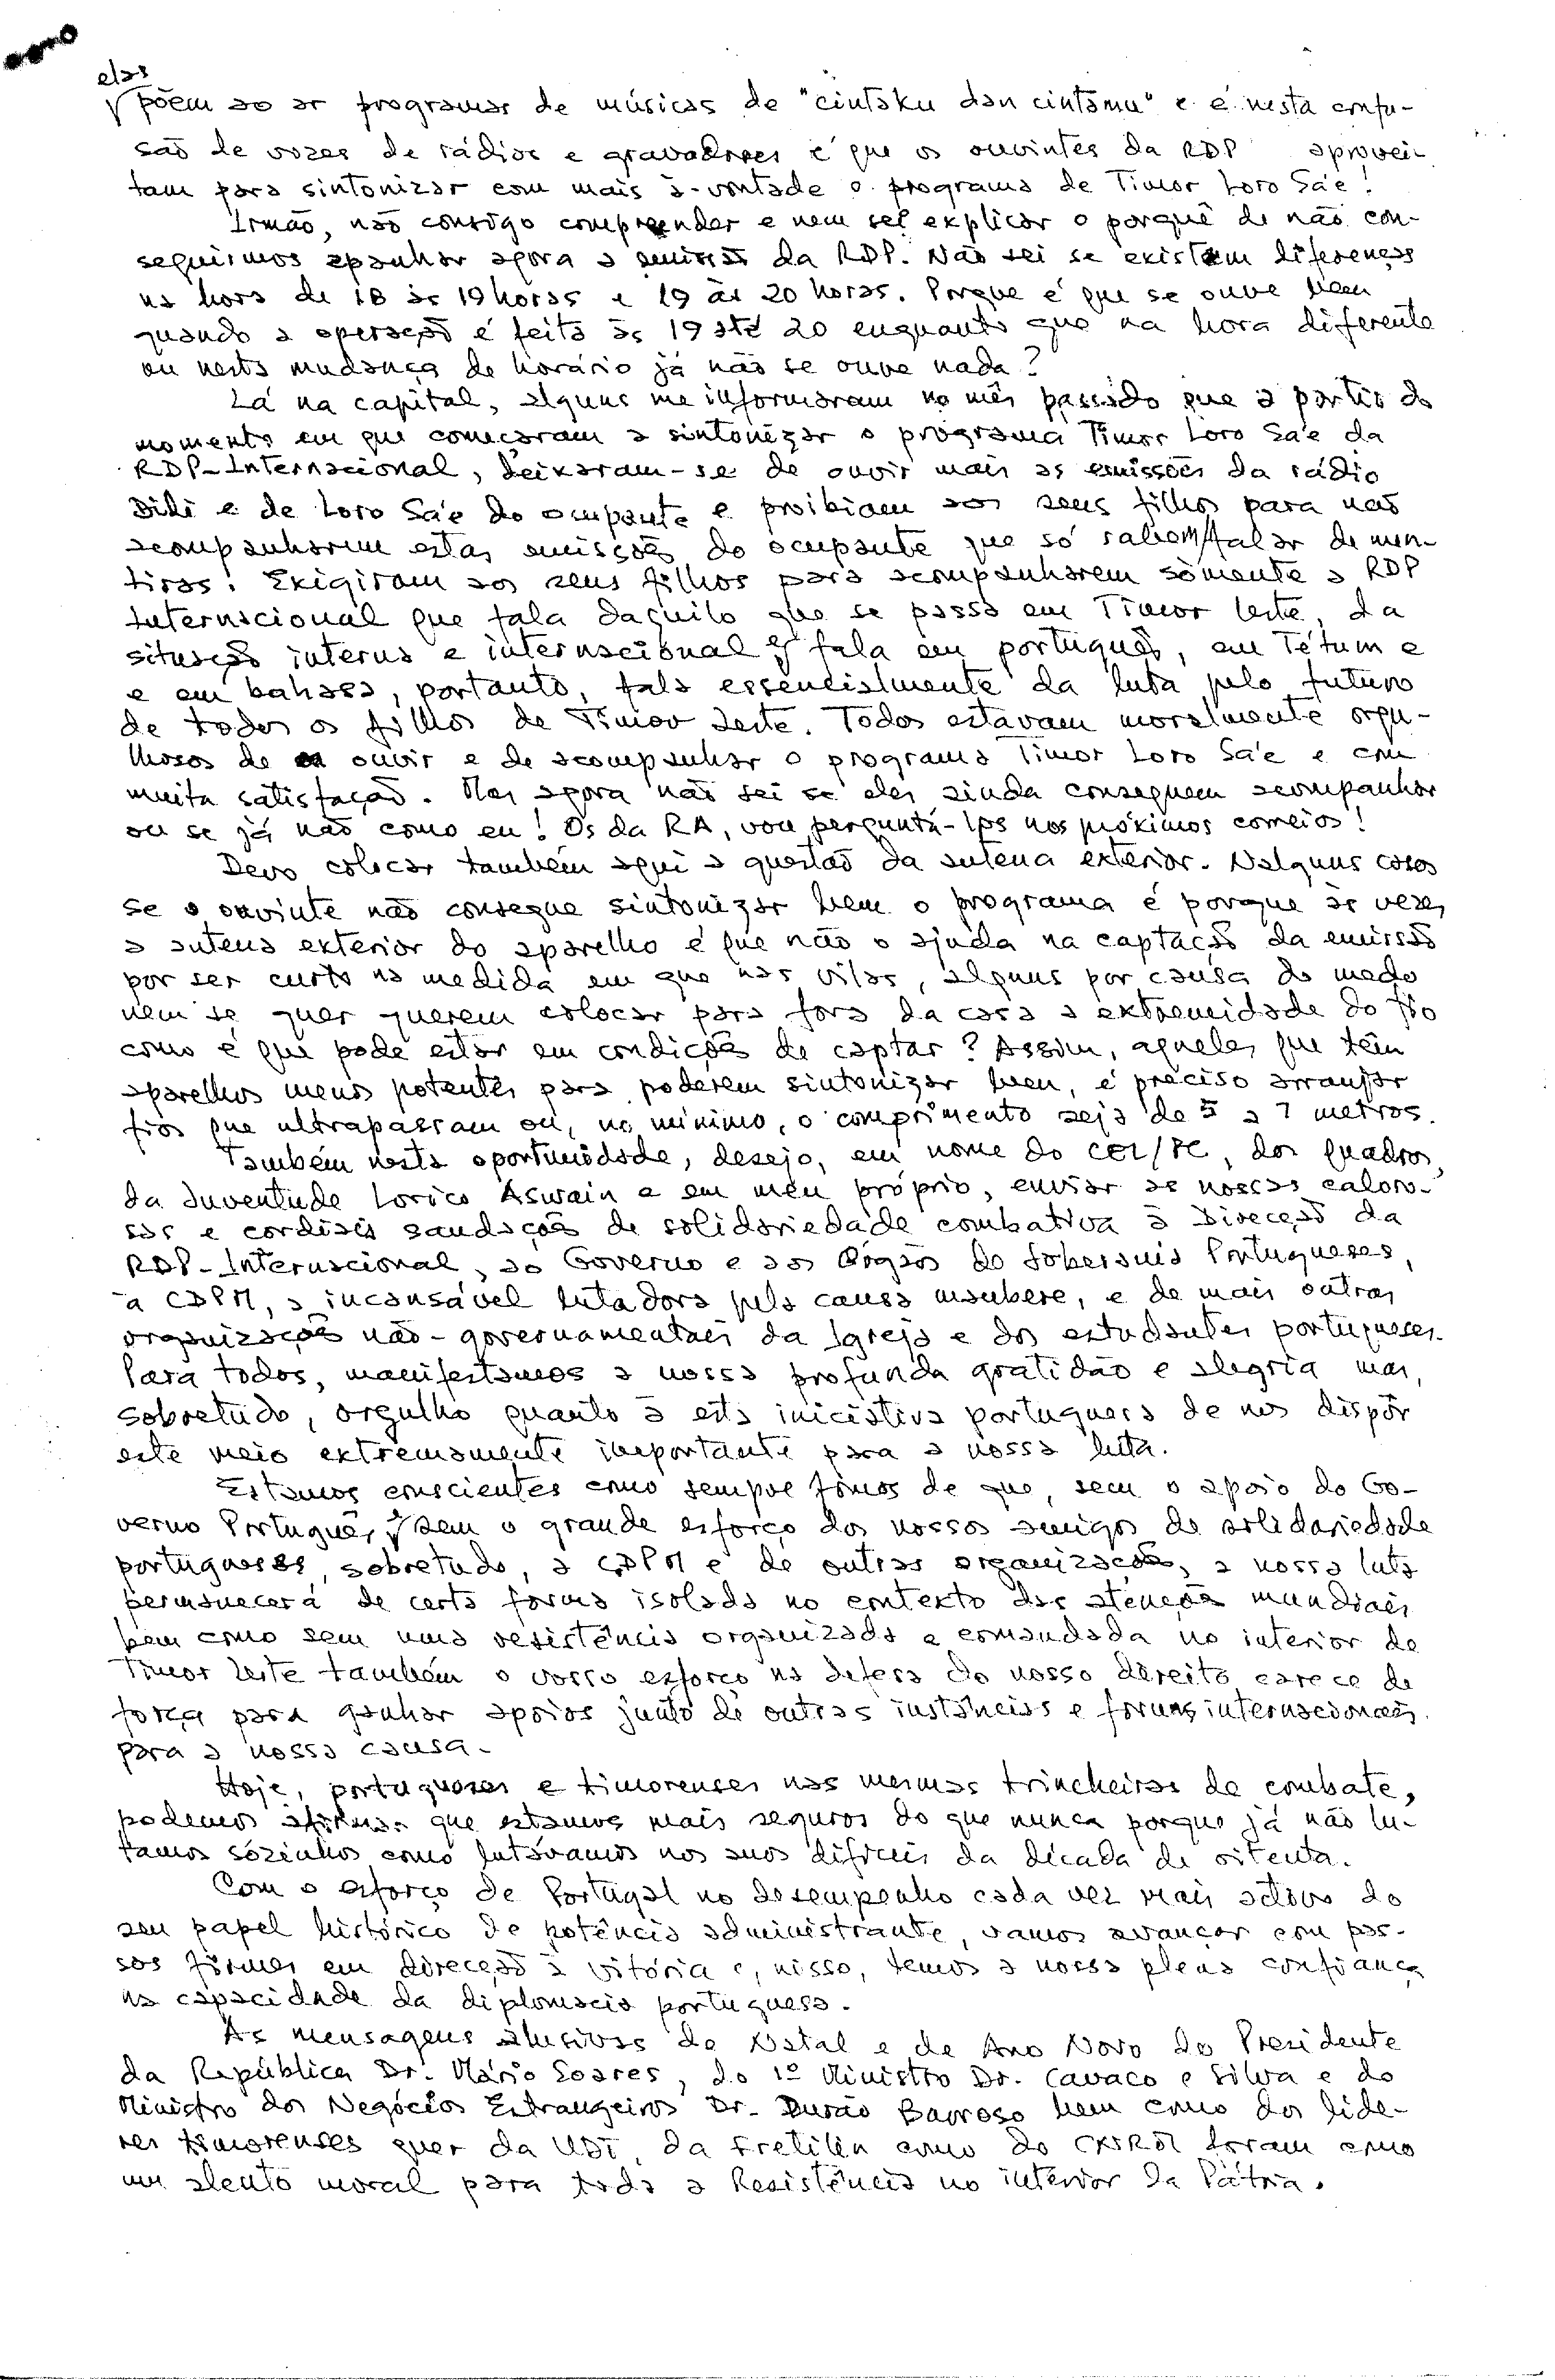 elas
põem ao ar programas de músicas de "cintaku dan cintamu" e é nesta confu-
são de vozes de rádios e gravadores é que os ouvintes da RDP aprovei-
tam para sintonizar com mais à-vontade o programa de Timor Loro Sa'e!
Irmão, não consigo compreender e nem sei explicar o porquê de não con-
seguirmos apanhar agora a emissão da RDP. Não sei se existem diferenças
na hora de 18 às 19 horas e 19 às 20 horas. Porque é que se ouve bem
quando a operação é feita às 19 até 20 enquanto que na hora diferente
ou nesta mudança de horário já não se ouve nada?
Lá na capital, alguns me informaram no mês passado que a partir do
momento em que começaram a sintonizar o programa Timor Loro Sa'e da
RDP-Internacional, deixaram-se de ouvir mais as emissões da rádio
Dili e de Loro Sa'e do ocupante e proibiam aos seus filhos para não
acompanharem estas emissões do ocupante que só sabem falar de men-
tiras! Exigiram aos seus filhos para acompanharem sòmente a RDP
Internacional que fala daquilo que se passa em Timor Leste, da
situação interna e internacional e fala em português, em Tétum e
e em bahasa, portanto, fala essencialmente da luta pelo futuro
de todos os filhos de Timor Leste. Todos estavam moralmente orgu-
lhosos de ouvir e de acompanhar o programa Timor Loro Sa'e e com
muita satisfação. Mas agora não sei se eles ainda conseguem acompanhar
ou se já não como eu! Os da RA, vou perguntá-los nos próximos correios!
Devo colocar também aqui a questão da antena exterior. Nalguns casos
se o ouvinte não consegue sintonizar bem o programa é porque às vezes
a antena exterior do aparelho é que não o ajuda na captação da emissão
por ser curto na medida em que nas vilas, alguns por causa do medo
nem se quer querem colocar para fora da casa a extremidade do fio
como é que pode estar em condições de captar? Assim, aqueles que têm
aparelhos menos potentes para poderem sintonizar bem, é preciso arranjar
fios que ultrapassam ou, no mínimo, o comprimento seja de 5 a 7 metros.
Também nesta oportunidade, desejo, em nome do CEL/FC, dos Quadros,
da Juventude Lorico Aswain e em meu próprio, enviar as nossas caloro-
sas e cordiais saudações de solidariedade combativa à Direcção da
RDP-Internacional, ao Governo e aos Orgãos de Soberania Portugueses,
à CDPM, a incansável lutadora pela causa maubere, e de mais outras
organizações não-governamentais da Igreja e dos estudantes portugueses.
Para todos, manifestamos a nossa profunda gratidão e alegria mas,
sobretudo, orgulho quanto à esta iniciativa portuguesa de nos dispôr
este meio extremamente importante para a nossa luta.
Estamos conscientes como sempre fomos de que, sem o apoio do Go-
verno Português, e sem o grande esforço dos nossos amigos de solidariedade
portugueses, sobretudo, a CDPM e de outras organizações, a nossa luta
permanecerá de certa forma isolada no contexto das atenções mundiais
bem como sem uma resistência organizada e comandada no interior de
Timor Leste também o vosso esforço na defesa do nosso direito carece de
força para ganhar apoios junto de outras instâncias e foruns internacionais
para a nossa causa.
Hoje, portugueses e timorenses nas mesmas trincheiras de combate,
podemos afirmar que estamos mais seguros do que nunca porque já não lu-
tamos sòzinhos como lutávamos nos anos difíceis da década de oitenta.
Com o esforço de Portugal no desempenho cada vez mais activo do
seu papel histórico de potência administrante, vamos avançar com pas-
sos firmes em direcção à vitória e, nisso, temos a nossa plena confiança
na capacidade da diplomacia portuguesa.
As mensagens alusivas de Natal e de Ano Novo do Presidente
da República Dr. Mário Soares, do 1º Ministro Dr. Cavaco e Silva e do
Ministro dos Negócios Estrangeiros Dr. Durão Barroso bem como dos líde-
res timorenses quer da UDT, da Fretilin como do CNRM foram como
um alento moral para toda a Resistência no interior da Pátria.